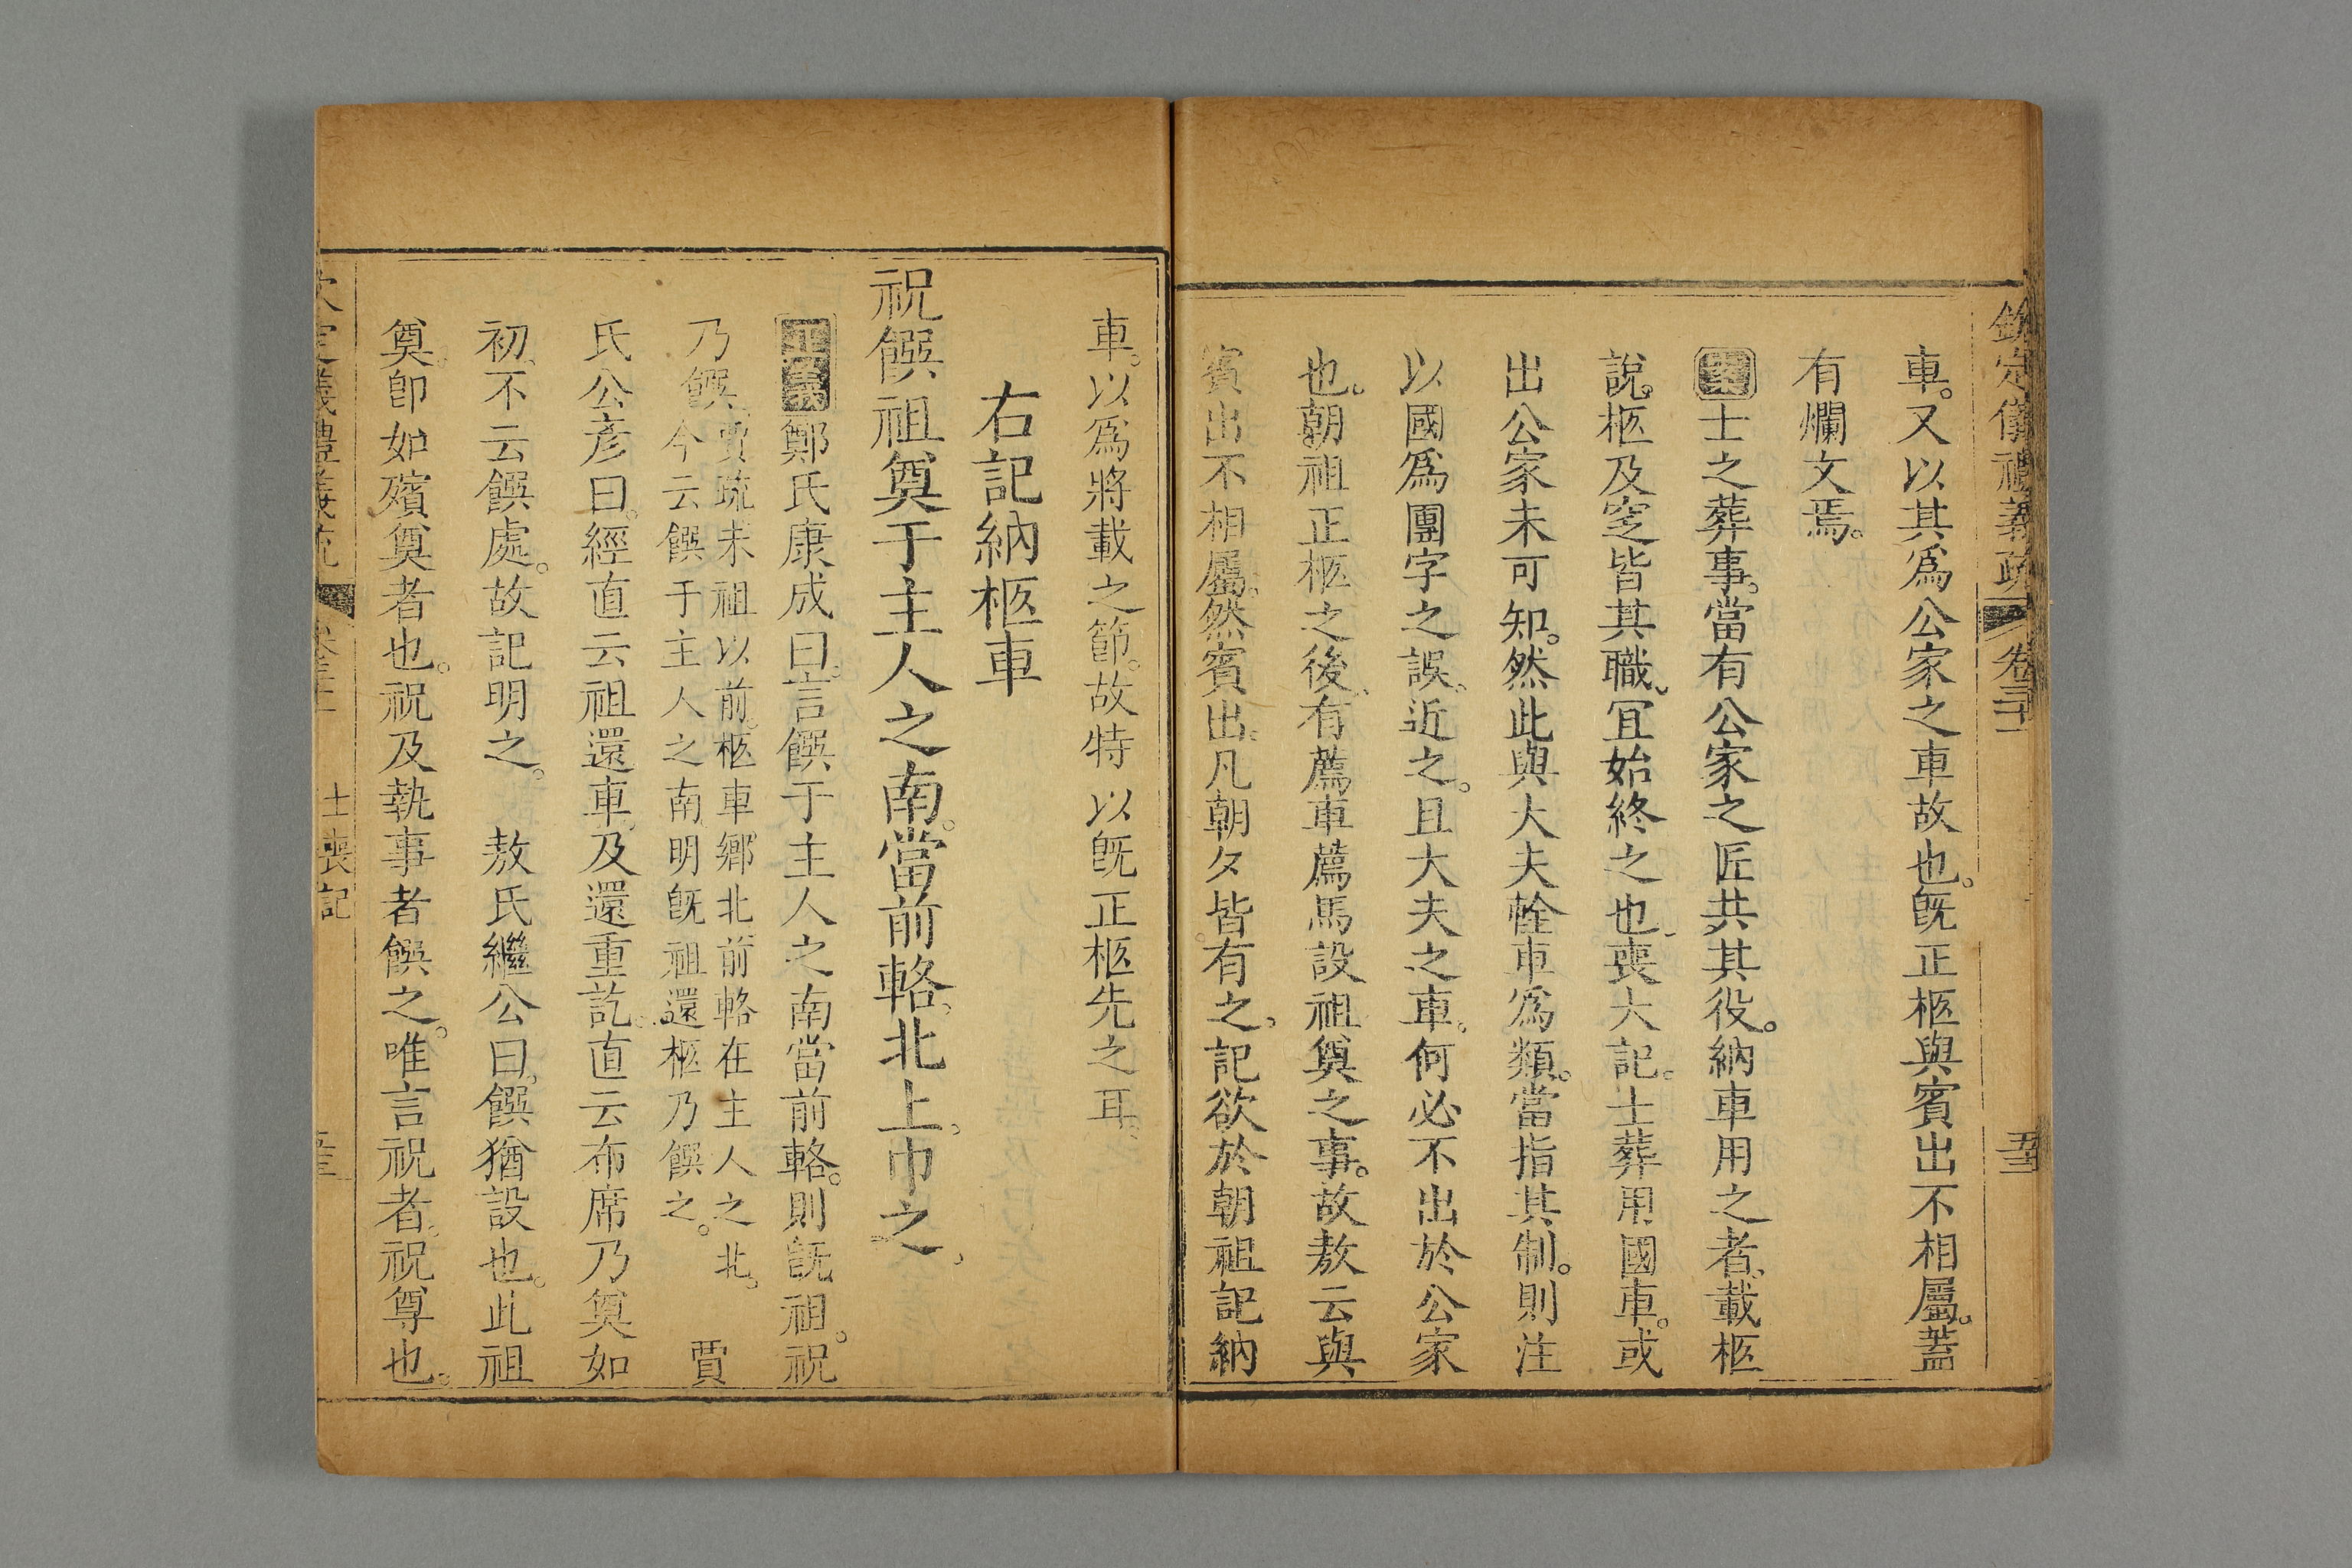 欽定儀禮義疏 卷三十一 至
車。又以其爲公家之車故也。旣正柩與賓出不相屬。蓋
有爛文焉。
案士之葬事。當有公家之匠共其役。納車用之者、載柩
說。柩及窆皆其職、冝始終之也、喪大記。士葬用國車。或
出公家未可知。然此與大夫輇車爲類。當指其制。則注
以國爲團字之誤、近之。且大夫之車。何必不出於公家
也。朝祖正柩之後、有薦車薦馬設祖奠之事。故敖云與
賓出不相屬。然賓出。凡朝夕皆有之。記欲於朝祖記納
車。以爲將載之節。故特以旣正柩先之耳。
右記納柩車
祝饌祖奠于主人之南。當前輅、北上、巾之、
正義鄭氏康成曰。言饌于主人之南當前輅。則旣祖。祝
乃饌、賈疏未祖以前。柩車鄉北前輅在主人之北。今云饌于主人之南明旣祖還柩乃饌之。 賈
氏公彥曰。經直云祖還車、及還重訖。直云布席乃奠如
初、不云饌處。故記明之。 敖氏繼公曰、饌猶設也。此祖
奠。卽如殯奠者也。祝及執事者饌之。唯言祝者、祝尊也。
士喪記